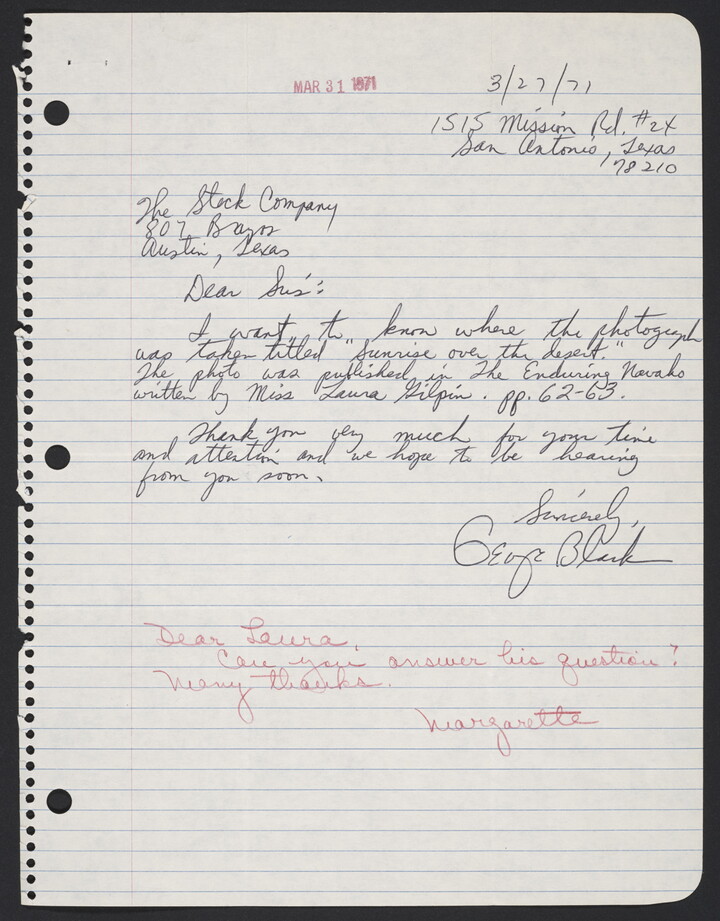 MAR 31 1971
3/27/71
1515 Mission Rd. #24
San Antonio, Texas
78210
The Steck Company
807 Brazos
Austin, Texas
Dear Sirs:
I want to know where the photograph
was taken titled "Sunrise over the desert."
The photo was published in The Enduring Navaho
written by Miss Laura Gilpin. pp. 62-63.
Thank you very much for your time
and attention and we hope to be hearing
from you soon.
Sincerely,
George Black
Dear Laura,
Can you answer his question?
Many thanks.
Margarette